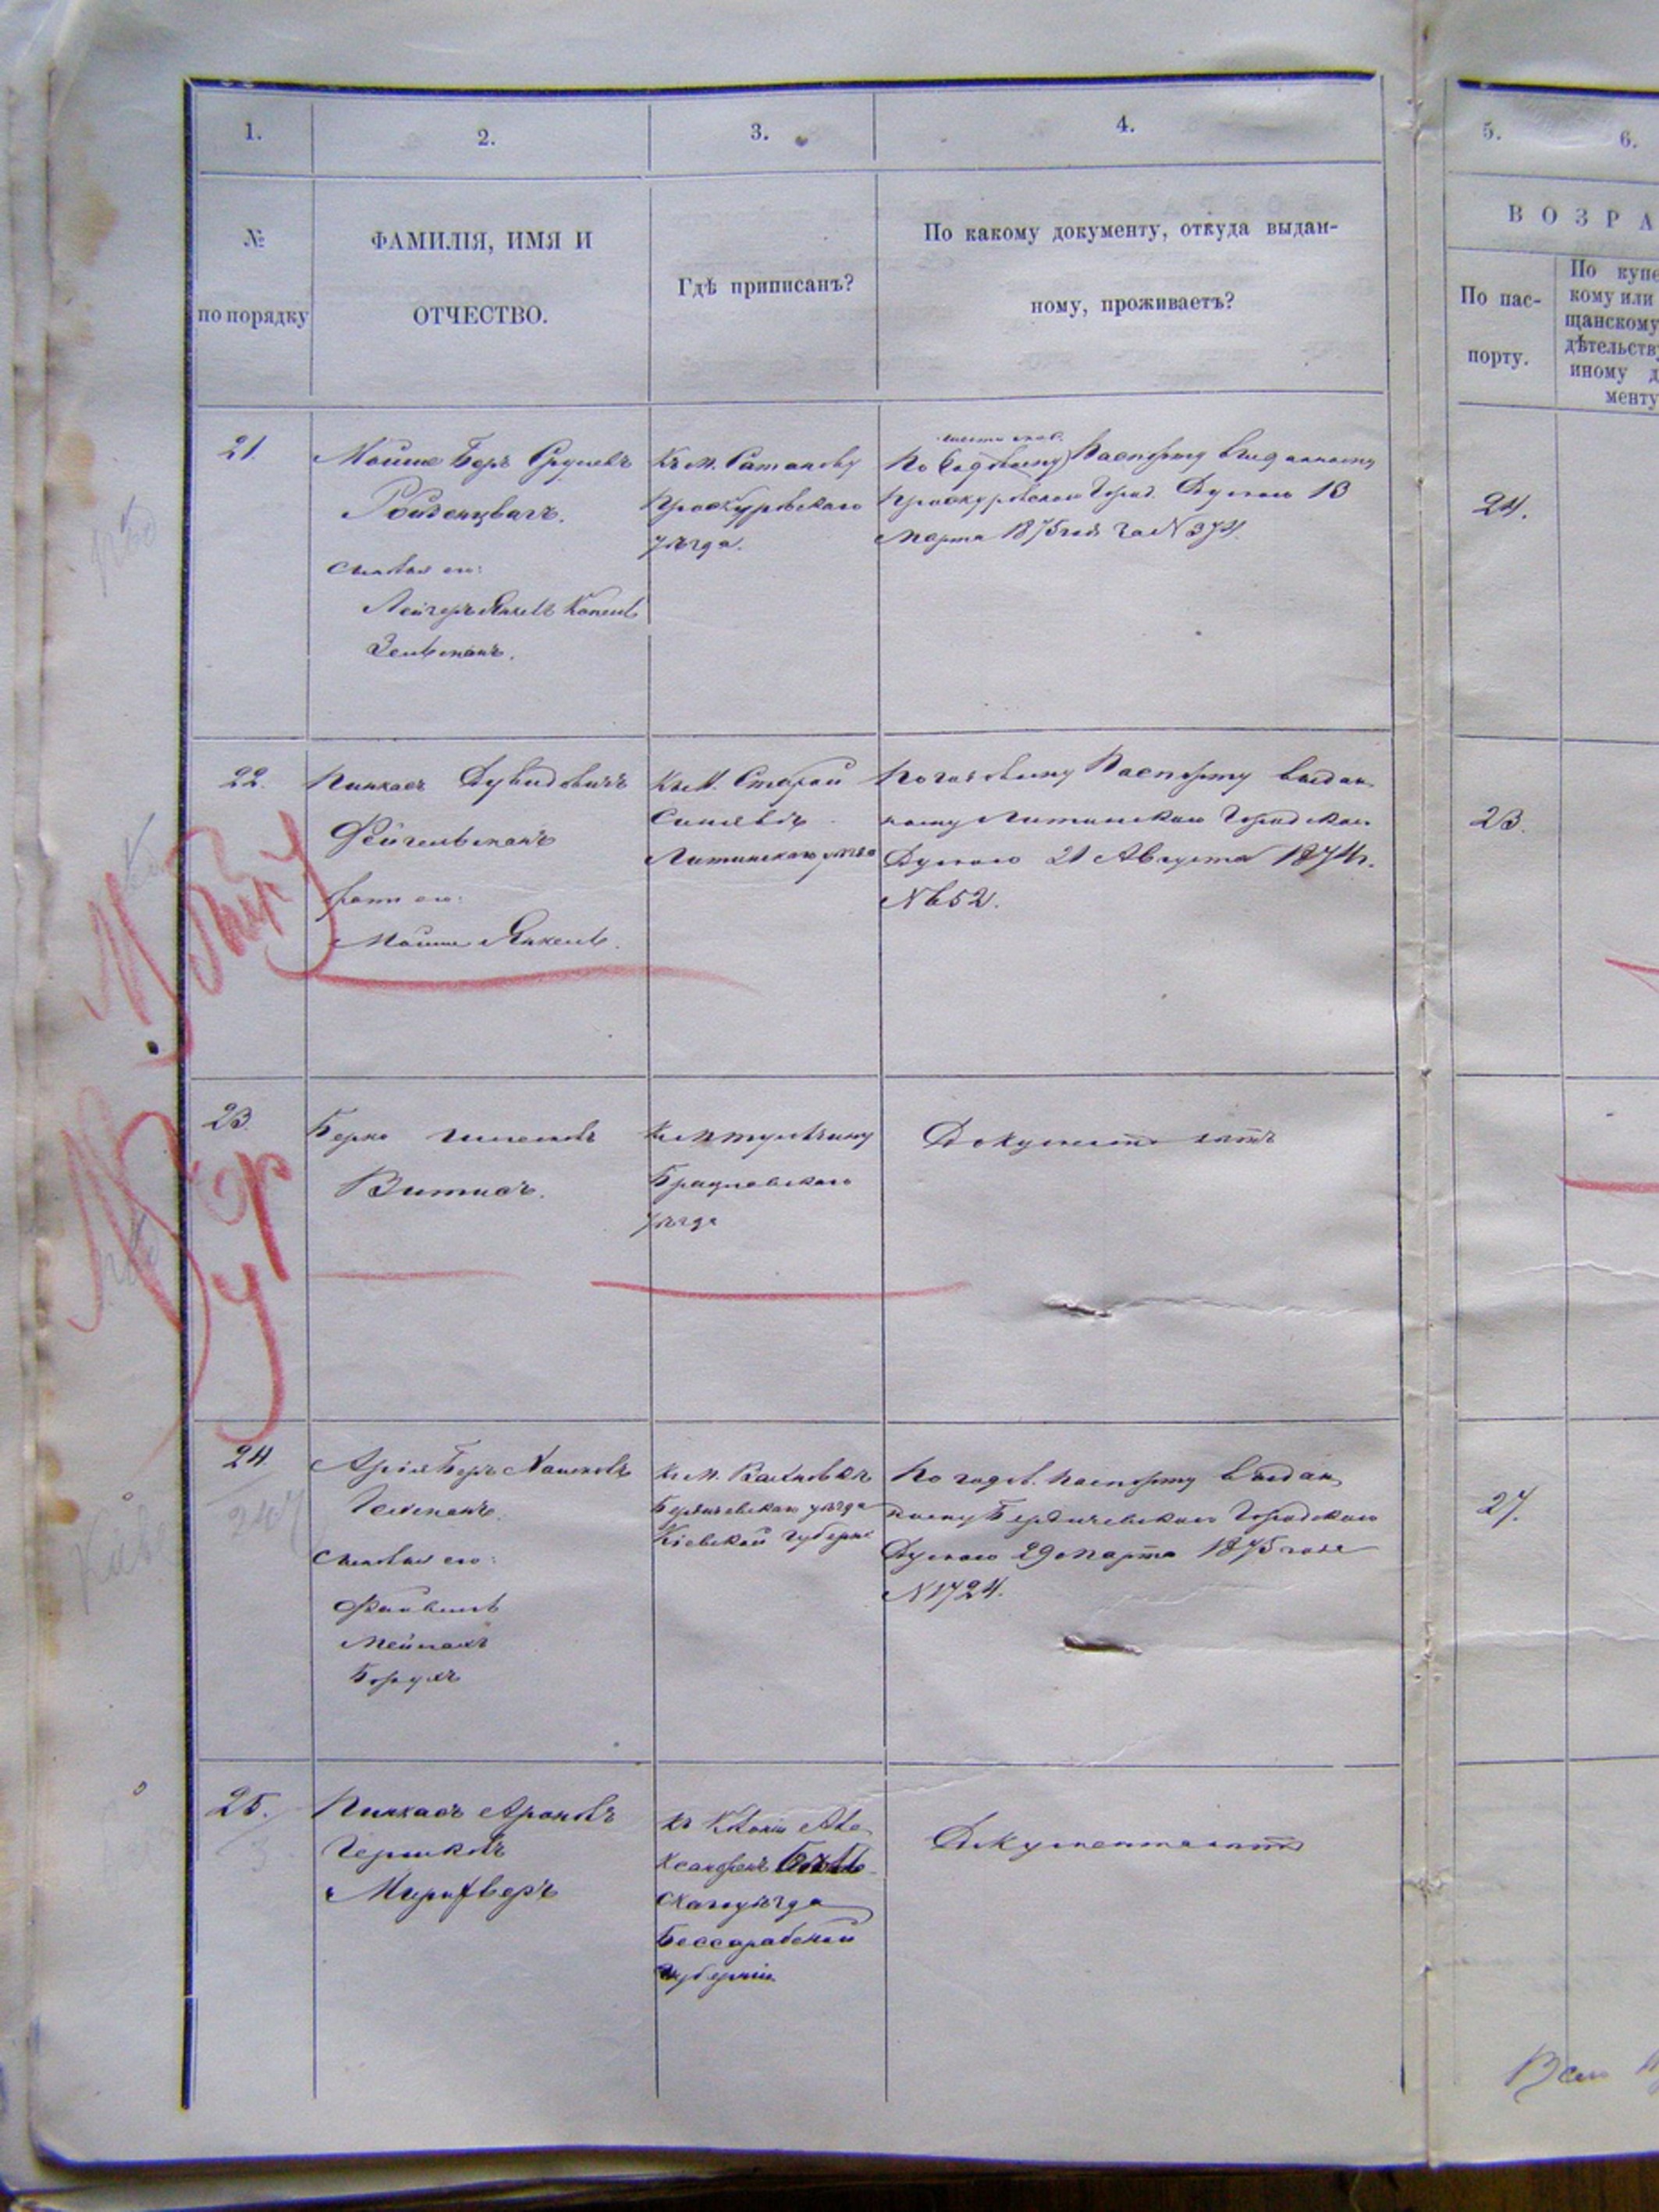 1.
2.
3.
4.
5.
6.
№
по порядку
ФАМИЛІЯ, ИМЯ И
ОТЧЕСТВО.
Гдѣ приписанъ?
По какому документу, откуда выдан-
ному, проживаетъ?
ВОЗРА
По пас-
порту.
По купе
кому или
щанскому
дѣтельств
иному д
менту
21.
Мойше Беръ Срулевъ
Ройзенцвагъ.
сыновья его:
Лейзеръ Янкель Копель
Зельманъ.
Къ м. Сатанову
Проскуровскаго
уѣзда.
По годовому Паспорту выданному
Проскуровскою Город. Думою 13
Марта 1875 года за N 374.
24.
22.
Пинкасъ Дувидовичъ
Фейгельманъ
братъ его:
Мойше Янкель.
Къ м. Старой
Синявѣ
Литинскаго уѣзда
По годовому Паспорту выдан
ному Литинскою Городскою
Думою 21 Августа 1874 г.
N 652.
23.
23.
Берко
Витисъ.
Къ м Тульчину
Брацлавскаго
уѣзда
Документа нѣтъ
24
247
Арія Беръ Хаимовъ
Гельманъ.
Сыновья его:
Файвель
Мейлахъ
Борухъ
Къ м. Вахновкѣ
Бердичевскаго уѣзда
Кіевской губерніи
По годов. паспорту выдан
ному Бердичевскою Городскою
Думою 29 Марта 1875 года
N 1724.
27.
25.
Пинкасъ Ароновъ
Гершковъ
Къ Колоніи Але
скаго уѣзда
Бессарабской
губерніи
Документа нѣтъ